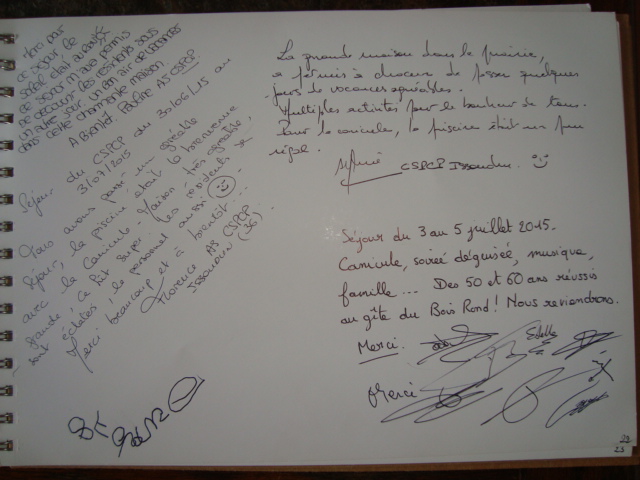 très par
ce séjour le
soleil était au rdv
ce séjour m'a permis
de découvrir les résidents sous
un autre jour, un bon air de vacances
dans cette charmante maison.
A Bientôt. Pauline AS CSPCP.
Séjour du CSPCP du 30/06/15 au
3/07/2015
Nous avons passé un agréable
séjour, la piscine était la bienvenue
avec la canicule. Maison très agréable,
grande, ce fut super. Les résidents se
sont éclatés, le personnel aussi
Merci beaucoup et à bientôt...
Florence AS CSPCP
Issoudun (36).
La grande maison dans la prairie,
a permis à chacun de passer quelques
jours de vacances agréables.
Multiples activités pour le bonheur de tous.
Pour la canicule, la piscine était un pur
régal.
CSPCP Issoudun.
Séjour du 3 au 5 juillet 2015.
Canicule, soirée déguisée, musique,
famille... Des 50 et 60 ans réussis
au gîte du Bois Rond! Nous reviendrons.
Merci.
Estelle
Merci
23